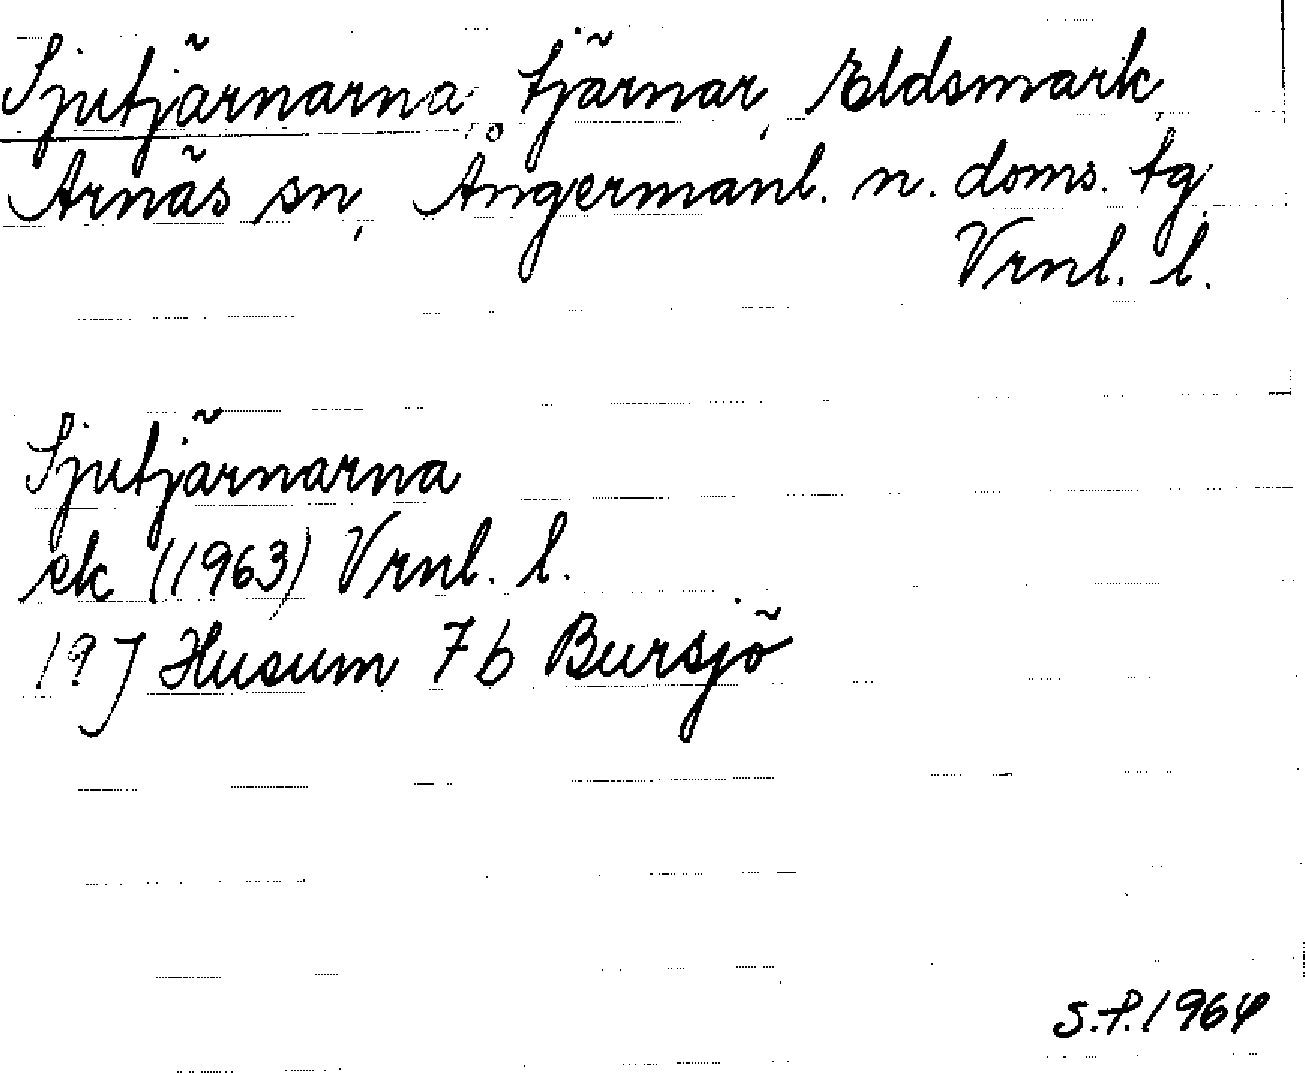 Sjutjärnarna, tjärnar, Eldsmark,
Arnäs sn, Ångermanl. n. doms. tg
Vrnl. l.
Sjutjärnarna
ek (1963) Vrnl. l.
19J Husum 7b Bursjö
S.P. 1964